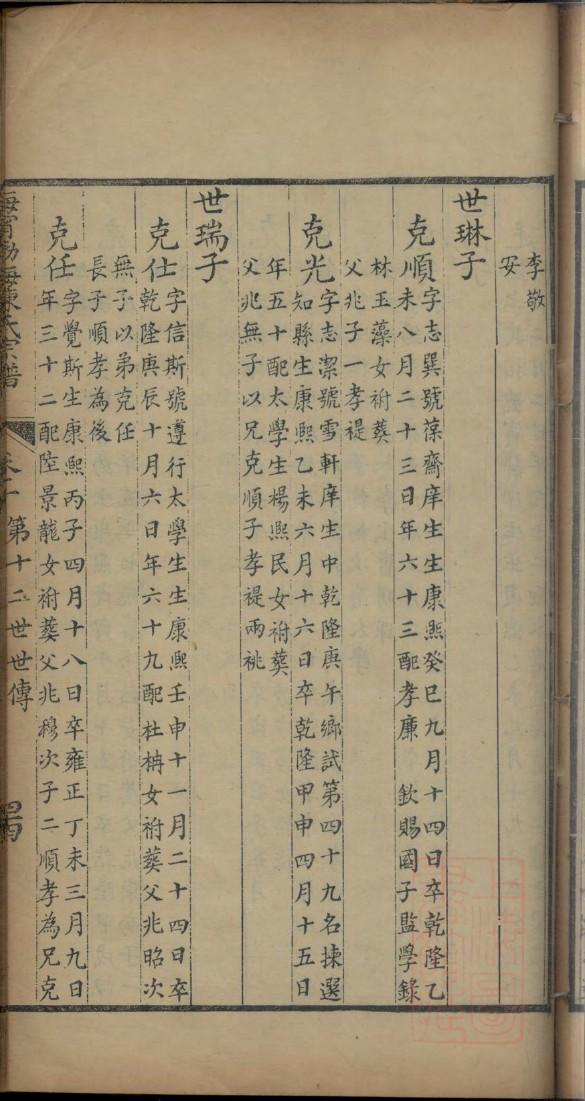 李敬
安
世琳子
克順字志巽號葆齋庠生生康熙癸巳九月十四日卒乾隆乙
未八月二十三日年六十三配孝廉 欽賜國子監學錄
林玉藻女祔葬
父兆子一孝禔
克光字志潔號雪軒庠生中乾隆庚午鄉試第四十九名揀選
知縣生康熙乙未六月十六日卒乾隆甲申四月十五日
年五十配太學生楊熙民女祔葬
父兆無子以兄克順子孝禔兩祧
世瑞子
克仕字信斯號遵行太學生生康熙壬申十一月二十四日卒
乾隆庚辰十月六日年六十九配杜柟女祔葬父兆昭次
無子以弟克任
長子順孝為後
克任字覺斯生康熙丙子四月十八日卒雍正丁未三月九日
年三十二配陸景龍女祔葬父兆穆次子二順孝為兄克
海寧渤海陳氏宗譜
第十二世世傳